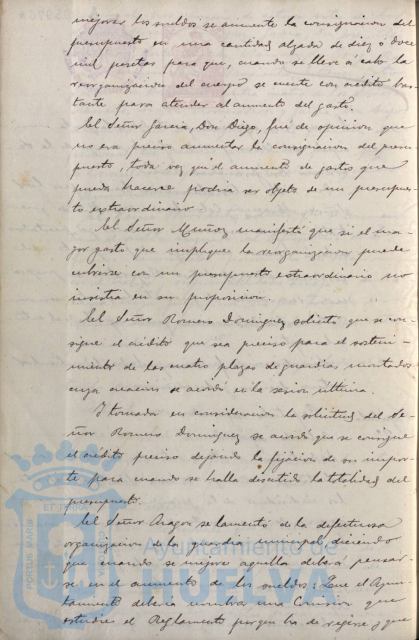 mejorar los sueldos se aumente la consignacion del
presupuesto en una cantidad alzada de diez ó doce
mil pesetas para que, cuando se lleve á cabo la
reorganizacion del cuerpo se cuente con crédito bas-
tante para atender al aumento del gasto.
El Señor García, Don Diego, fué de opinion que
no era preciso aumentar la consignacion del presu-
puesto, toda vez que el aumento de gastos que
pueda hacerse podria ser objeto de un presupues-
to extraordinario
El Señor Muñoz manifestó que si el ma-
yor gasto que implique la reorganizacion puede
cubrirse con un presupuesto extraordinario no
insistia en su proposicion.
El Señor Romero Dominguez solicitó que se con-
signe el crédito que sea preciso para el sosteni-
miento de las cuatro plazas de guardias montados
cuya creacion se acordó en la sesion última.
Y tomada en consideracion la solicitud del Se-
ñor Romero Dominguez se acordó que se consigne
el crédito preciso dejando la fijacion de su impor-
te para cuando se halla discutido la totalidad del
presupuesto.
El Señor Aragon se lamentó de la defectuosa
organizacion de la guardia municipal, diciendo
que cuando se mejore aquella deberá pensar-
se en el aumento de los sueldos: Que el Ayun-
tamiento debería nombrar una Comision que
estudie el Reglamento porque ha de regirse y que
PORTUS MARIS
Ayuntamiento de
HUELVA